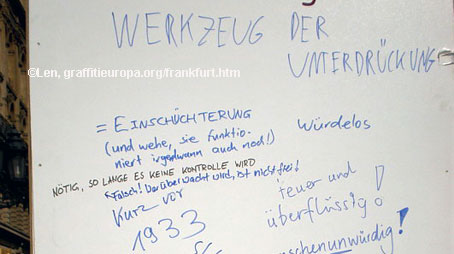 WERKZEUG DER
UNTERDRÜCKUNG
©Len, graffitieuropa.org/frankfurt.htm
= EINSCHÜCHTERUNG
(und wehe, sie funktio-
niert irgendwann auch noch!)
würdelos
NÖTIG, SO LANGE ES KEINE KONTROLLE WIRD
Falsch! Wer überwacht wird, ist nicht frei!
Kurz vor
1933
teuer und
überflüssig!
menschenunwürdig!